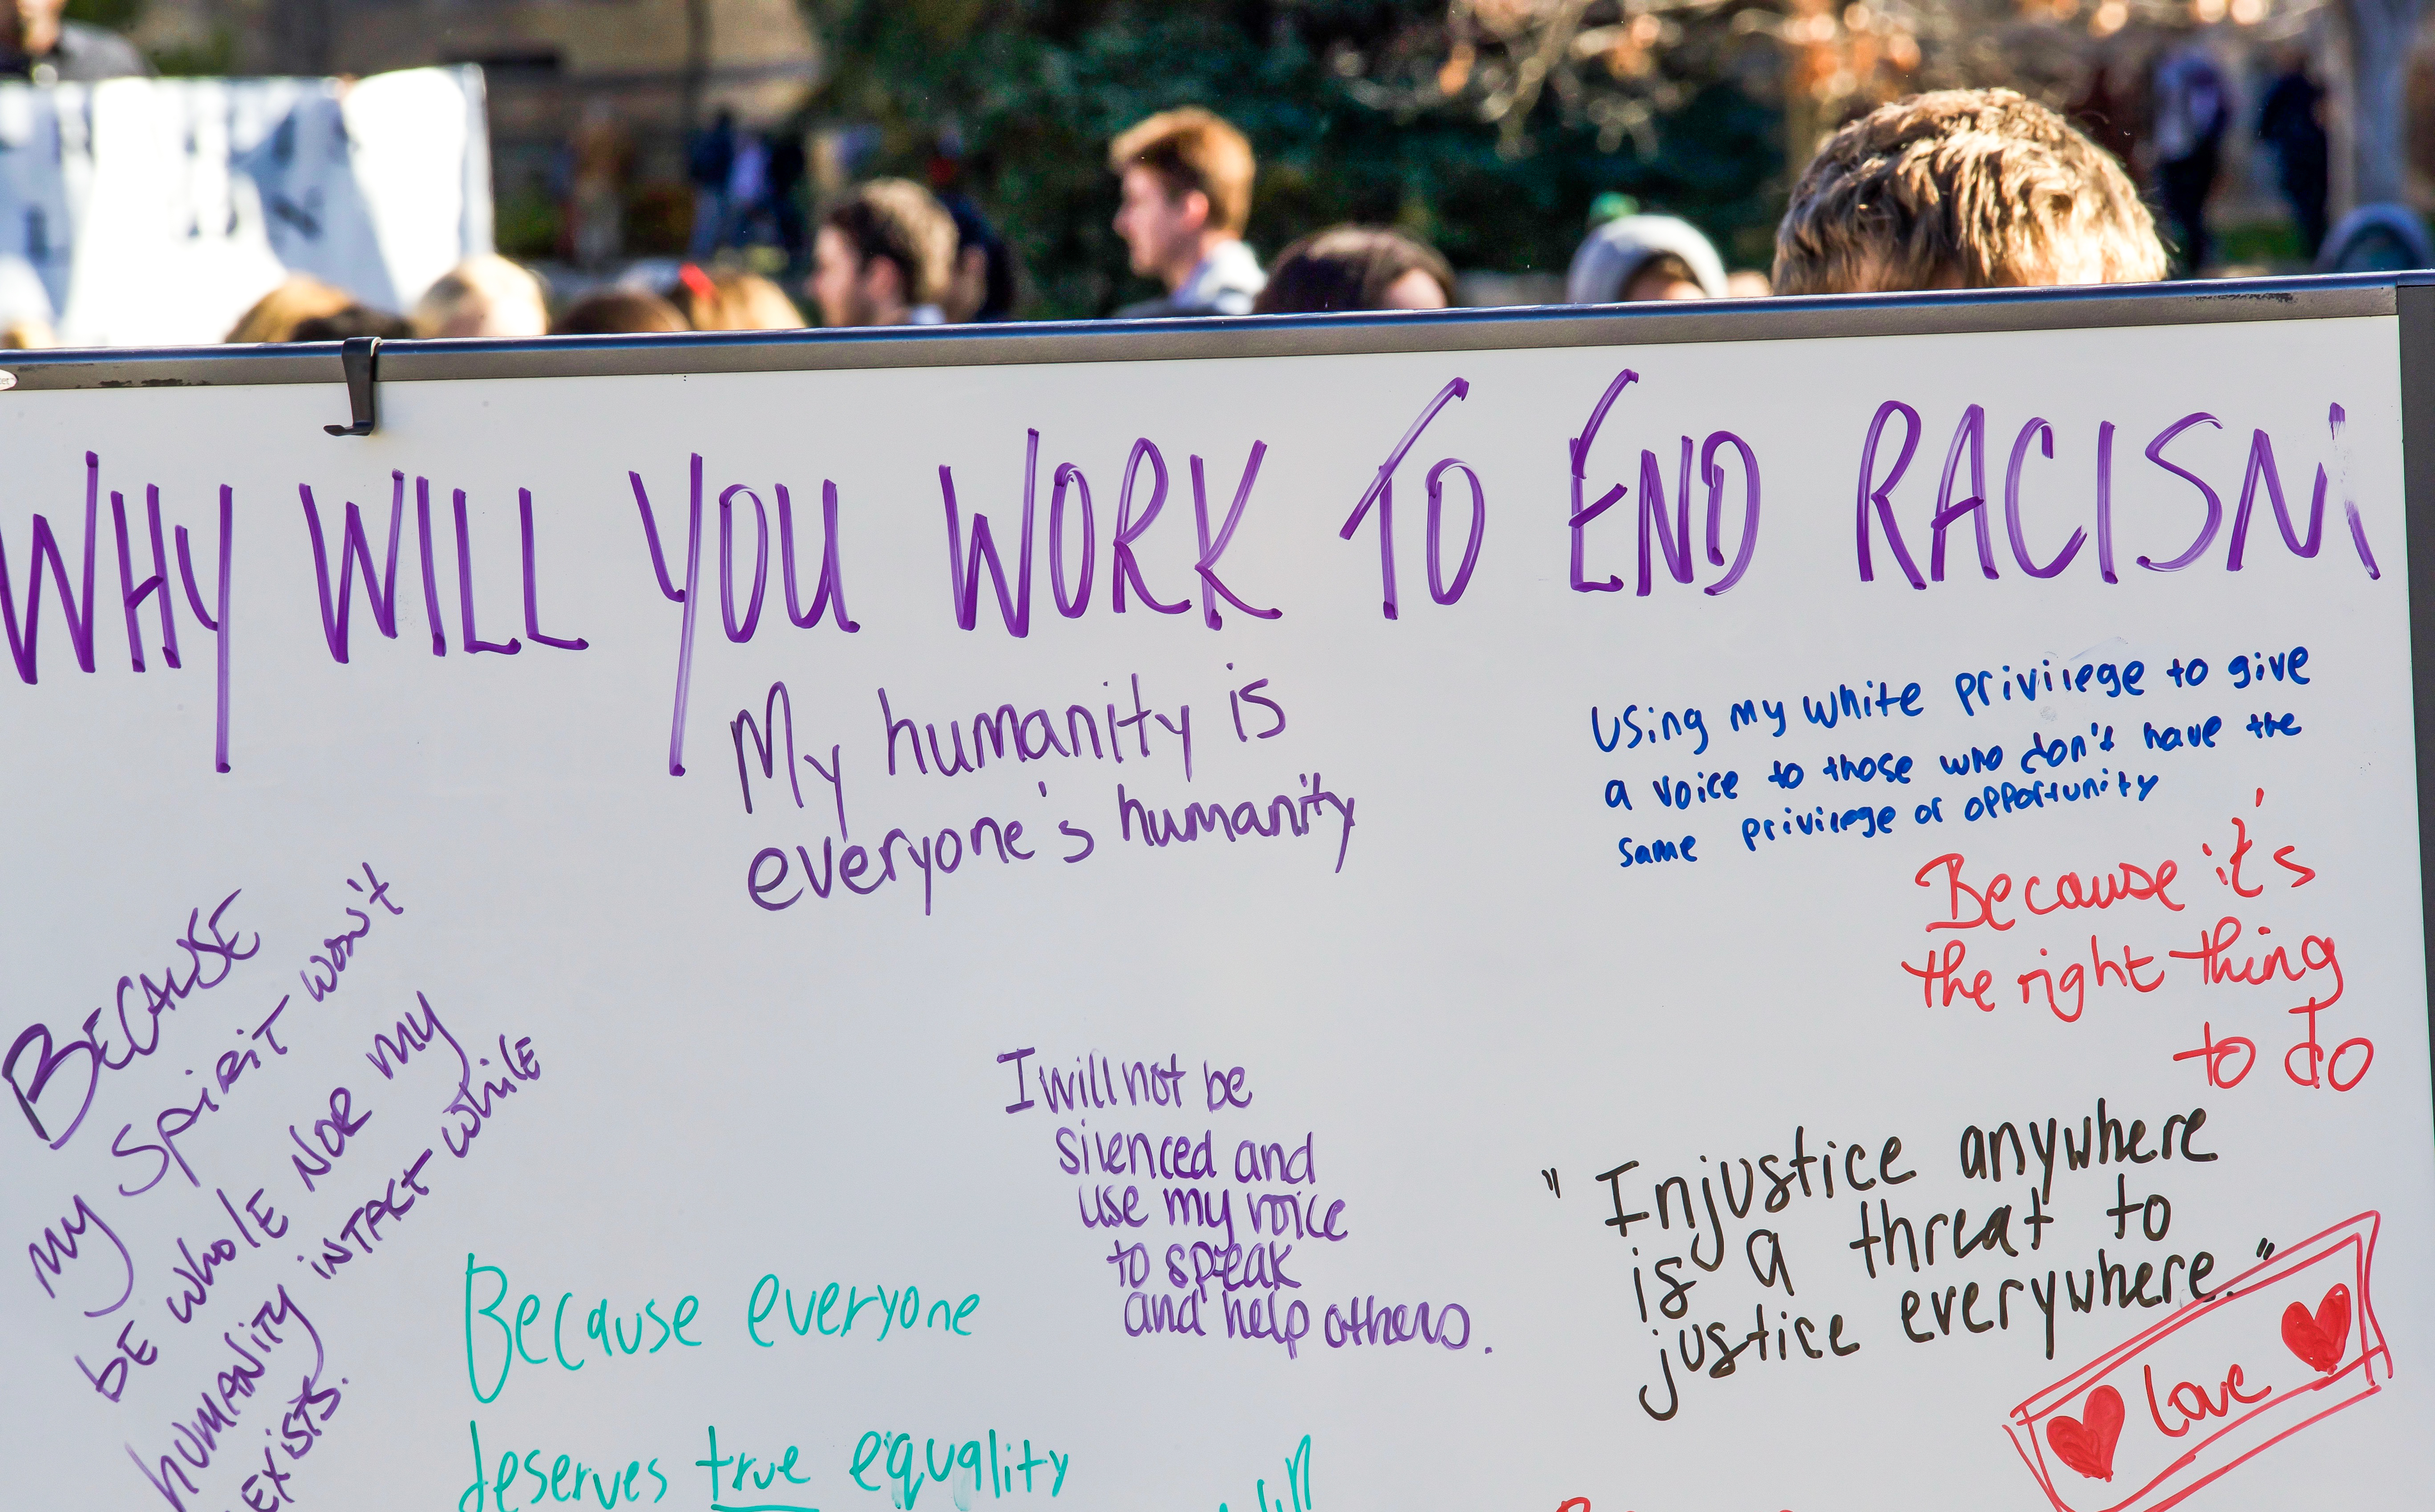 WHY WILL YOU WORK TO END RACISM
My humanity is
everyone's humanity
Using my white privilege to give
a voice to those who don't have the
same privilege or opportunity
Because it's
the right thing
to do
BECAUSE
my spirit won't
be whole nor my
humanity intact while
exists.
I will not be
silenced and
use my voice
to speak
and help others.
"Injustice anywhere
is a threat to
justice everywhere."
Love
Because everyone
deserves true equality